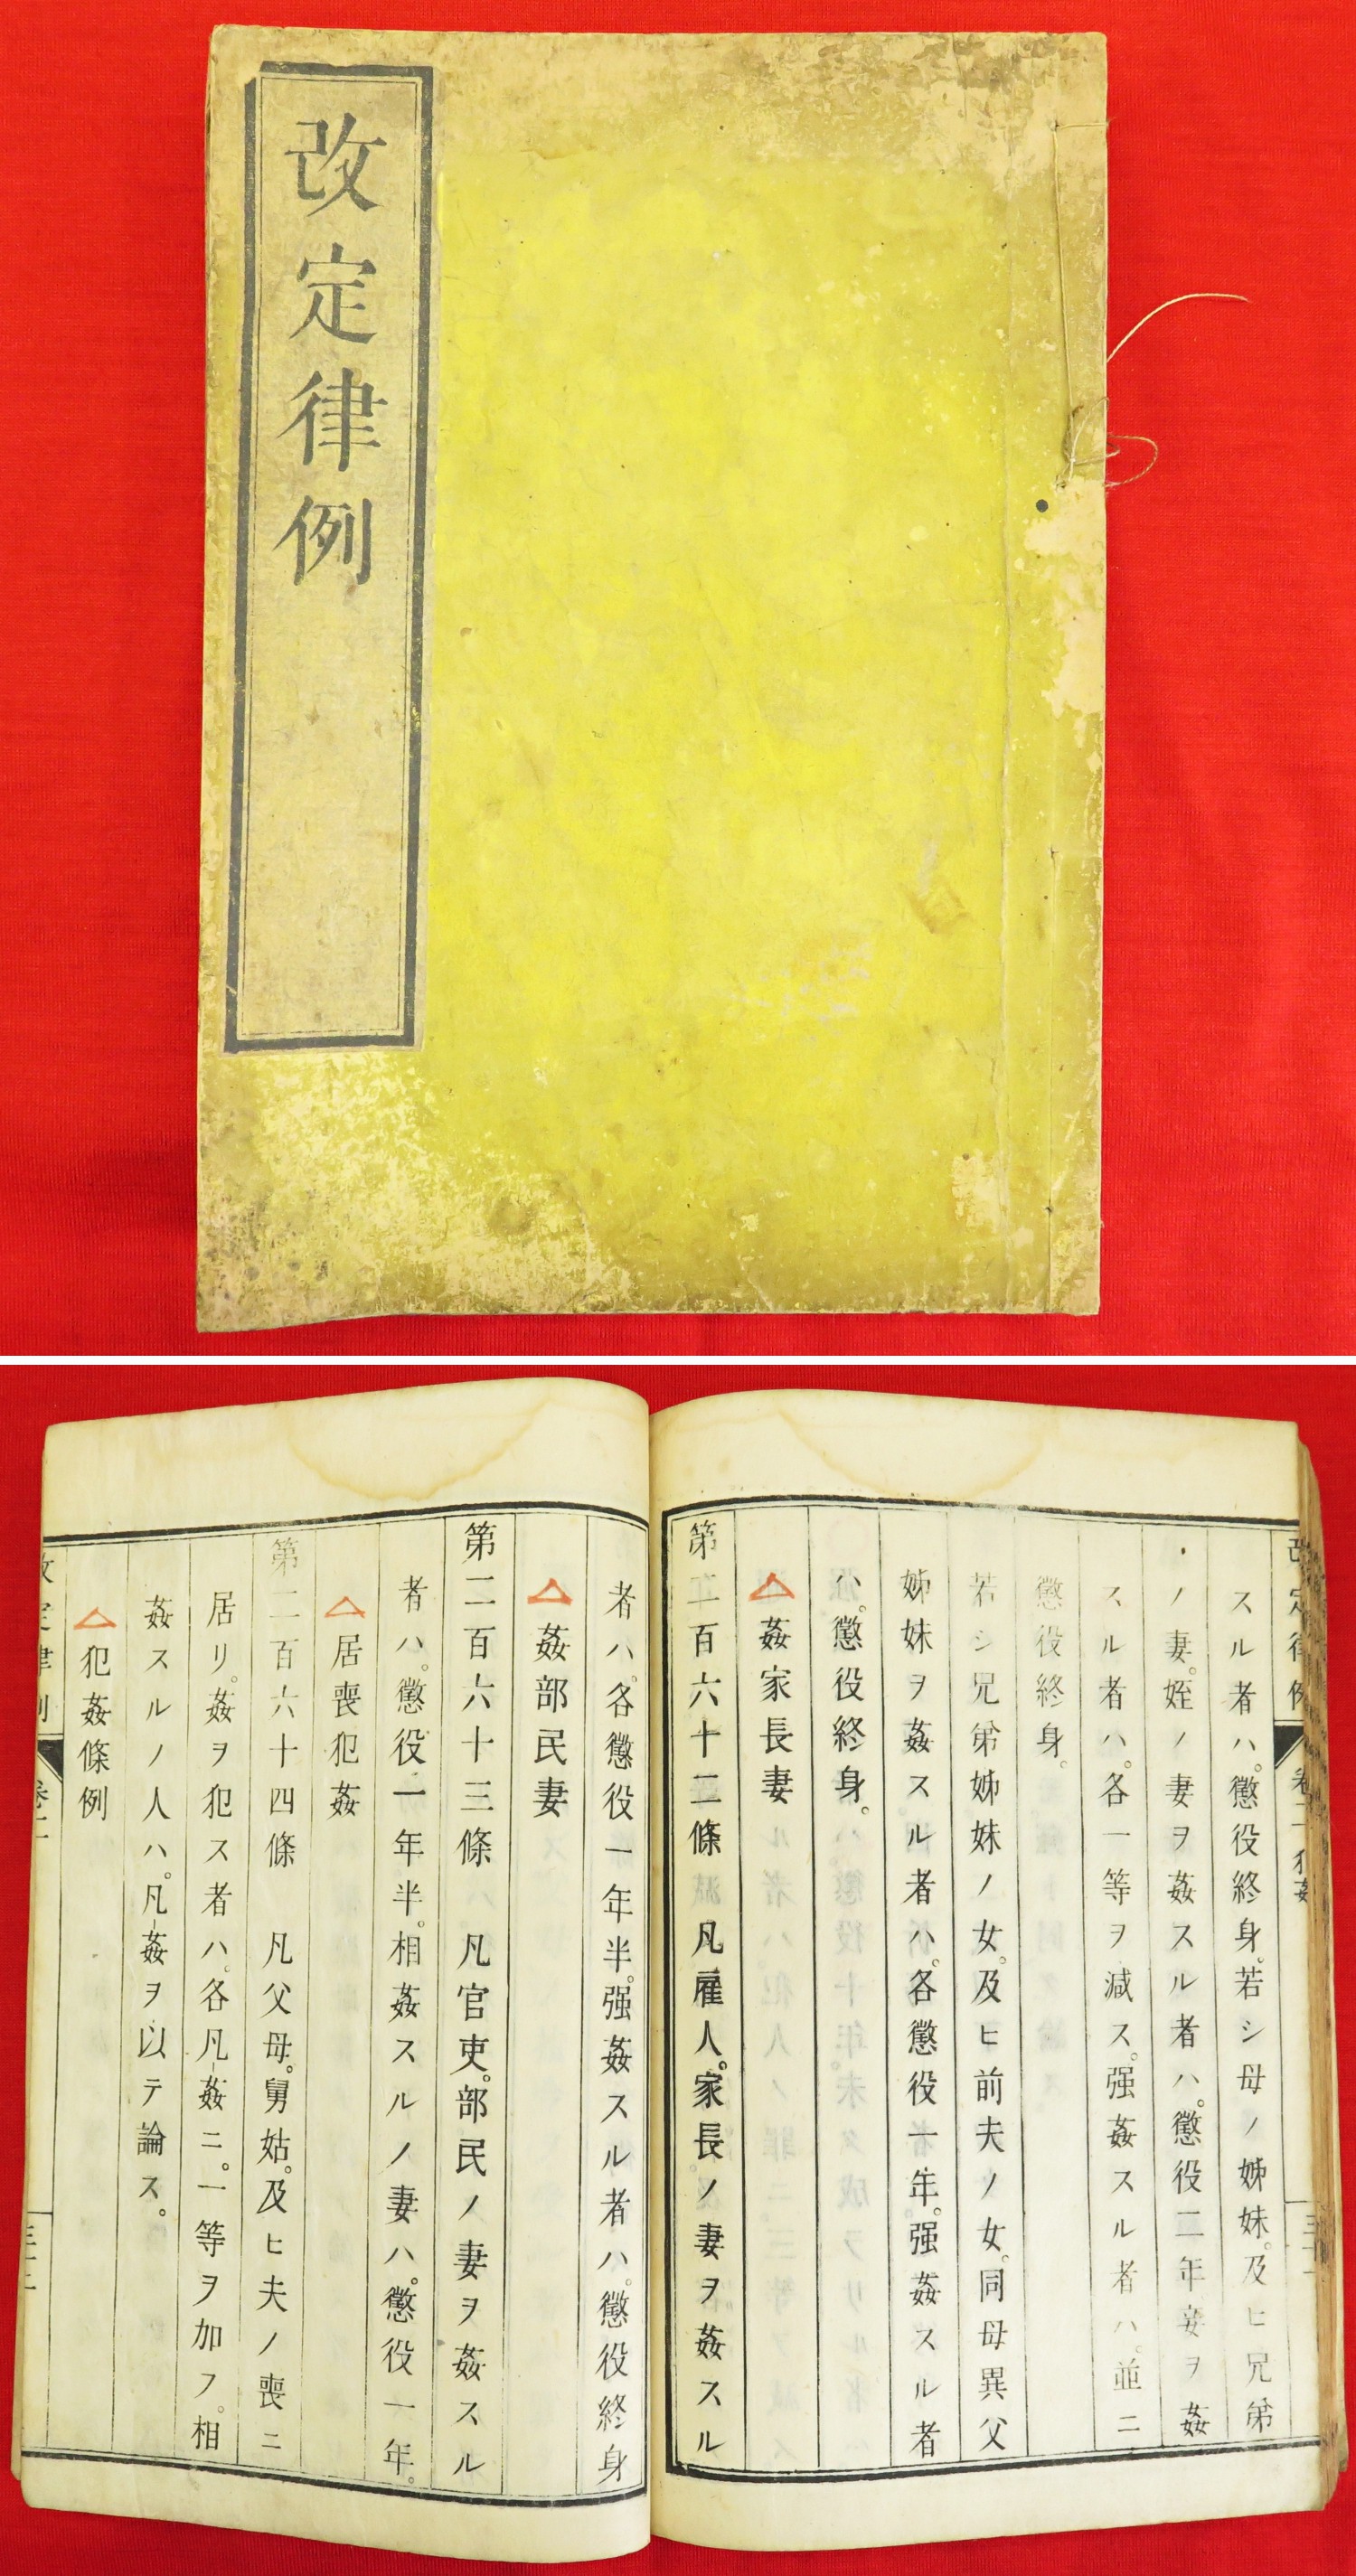 改定律例
改定律例 卷二 犯姦
スル者ハ。懲役終身。若シ母ノ姊妹。及ヒ兄弟
ノ妻。姪ノ妻ヲ姦スル者ハ。懲役二年妾ヲ姦
スル者ハ。各一等ヲ減ス。强姦スル者ハ。並ニ
懲役終身。
若シ兄弟姊妹ノ女。及ヒ前夫ノ女。同母異父
姊妹ヲ姦スル者ハ。各懲役一年。强姦スル者
ハ。懲役終身。
△姦家長妻
第二百六十二條 凡雇人。家長ノ妻ヲ姦スル
者ハ。各懲役一年半。强姦スル者ハ。懲役終身
△姦部民妻
第二百六十三條 凡官吏。部民ノ妻ヲ姦スル
者ハ。懲役一年半。相姦スルノ妻ハ。懲役一年。
△居喪犯姦
第二百六十四條 凡父母。舅姑。及ヒ夫ノ喪ニ
居リ。姦ヲ犯ス者ハ。各凡姦ニ。一等ヲ加フ。相
姦スルノ人ハ。凡姦ヲ以テ論ス。
△犯姦條例
改定律例 卷二